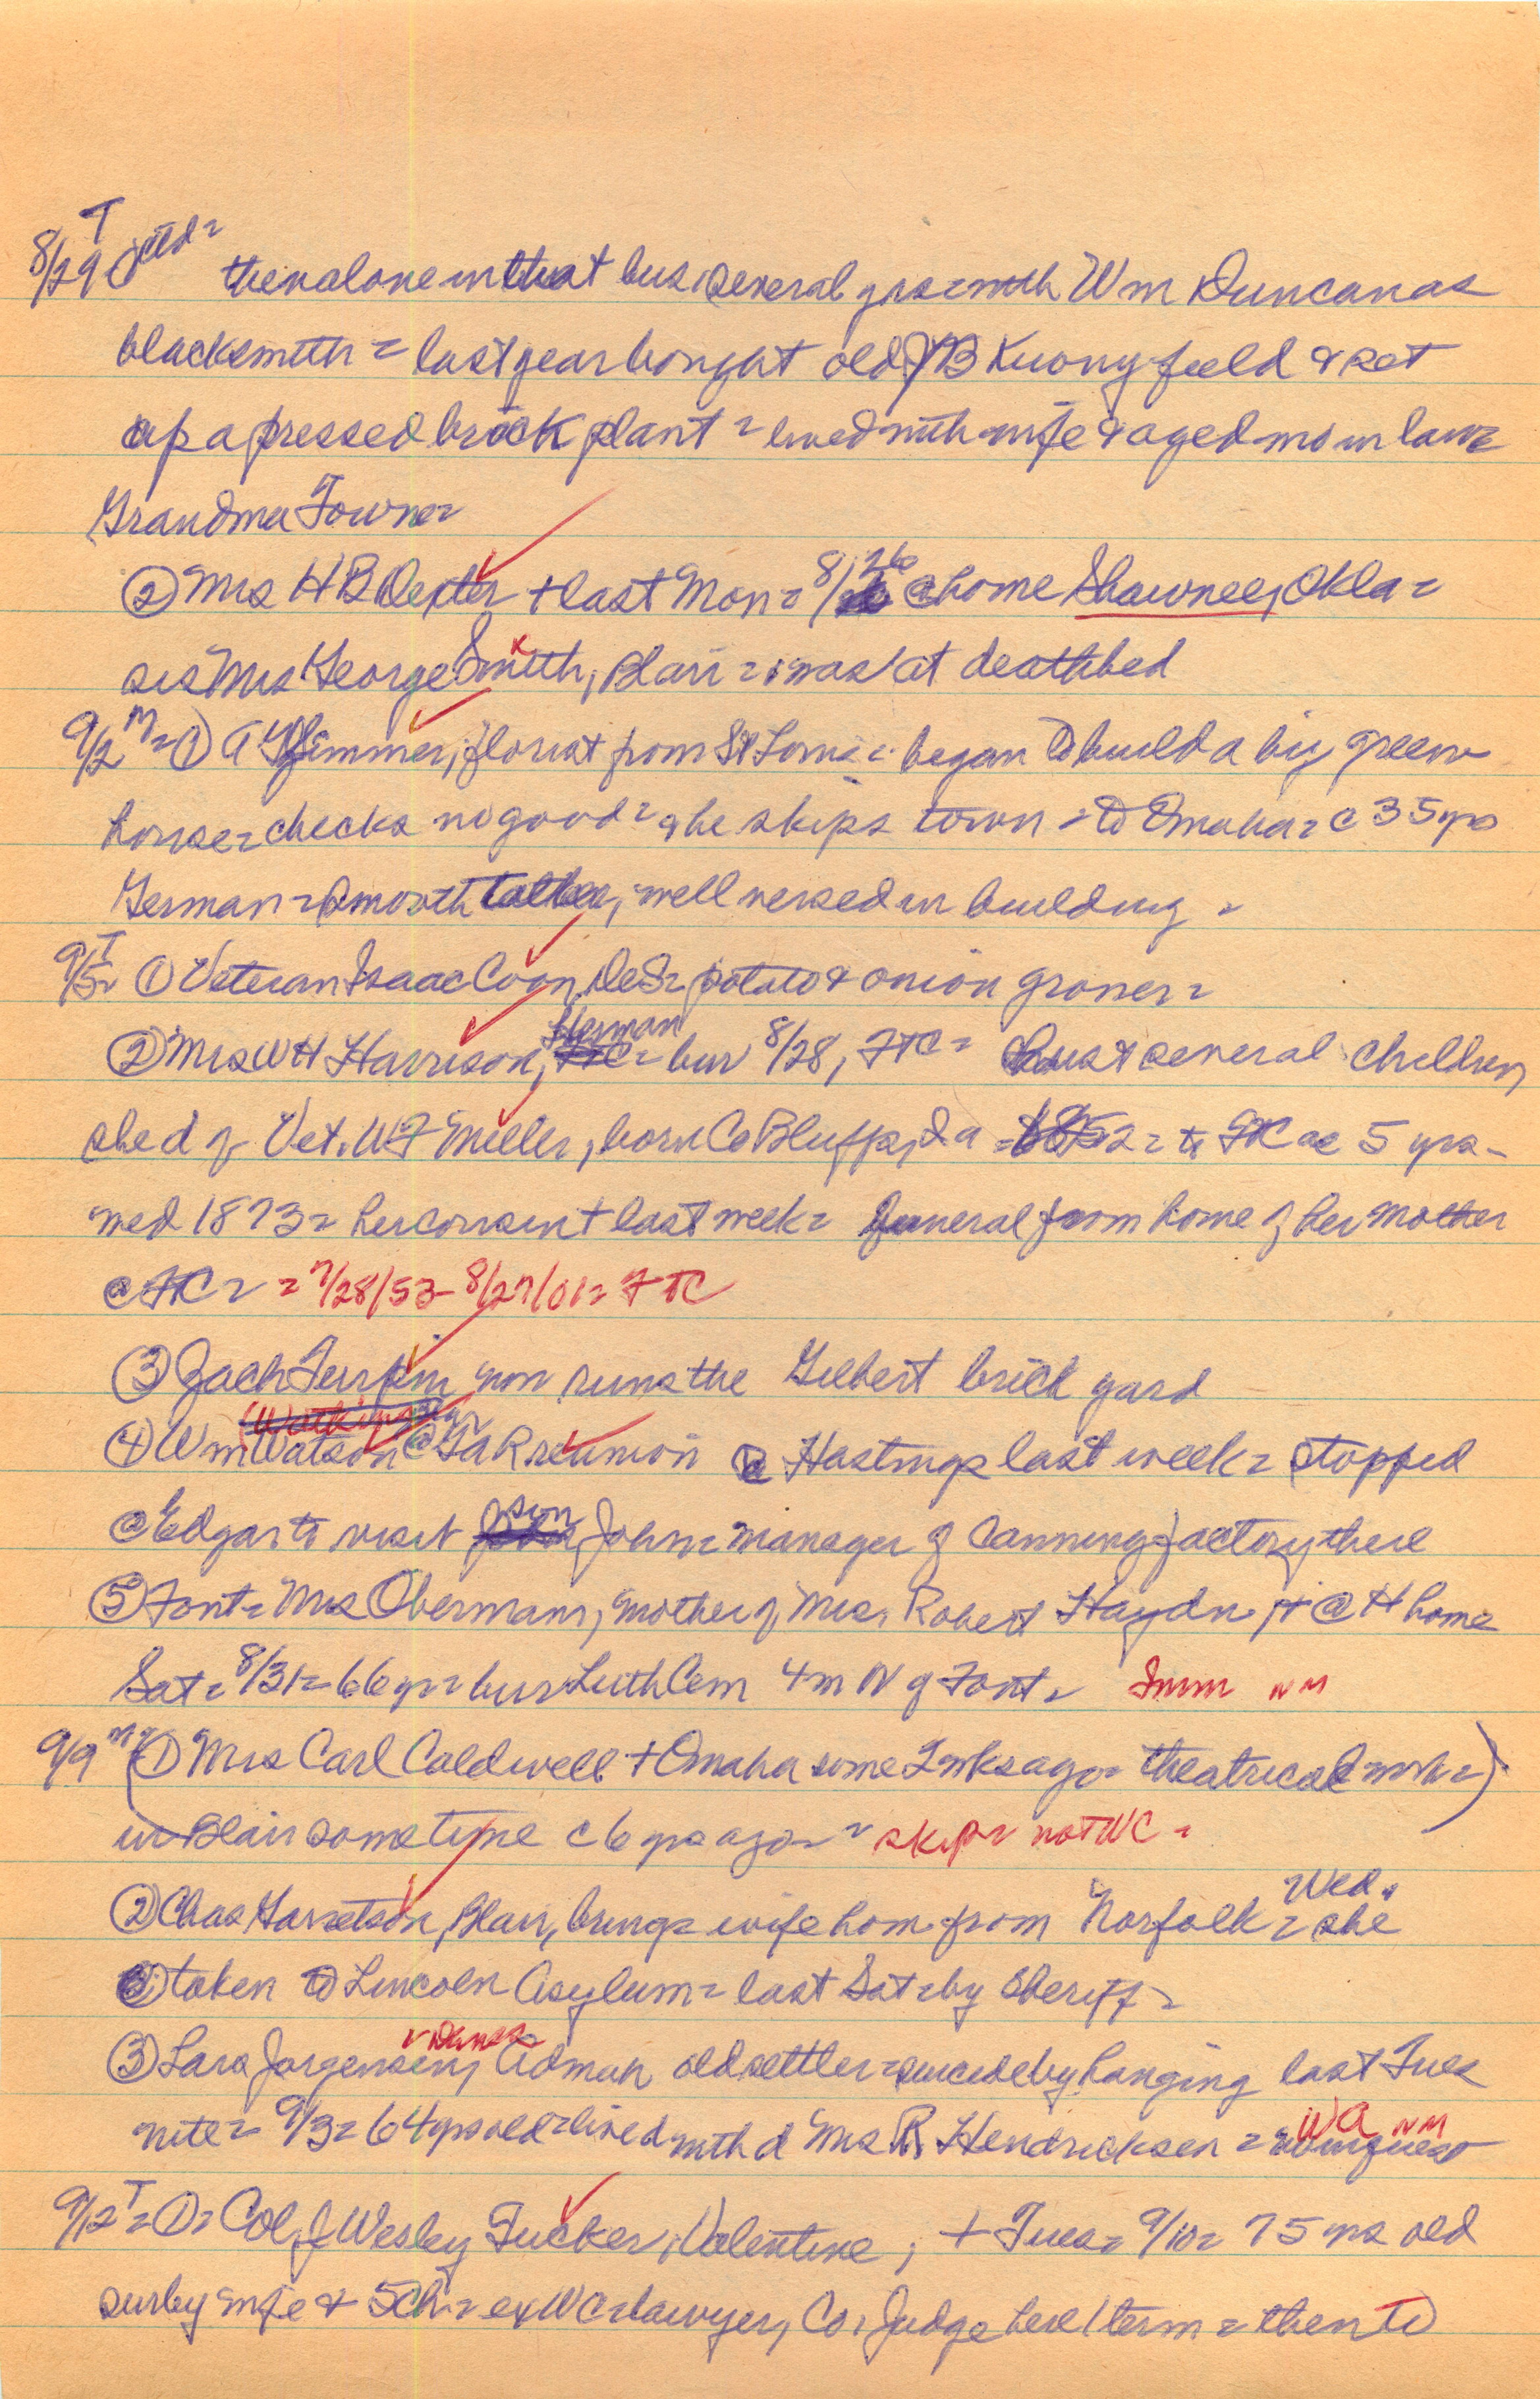 8/29 T ctd =
then alone in that bus, several yrs = with Wm Duncan as
blacksmith = last year bought old JB Kuony field & set
up a pressed brick plant = lived with wife & aged mo in law =
Grandma Towne =
② Mrs H B Dexter + last Mon = 8/26 @ home Shawnee, Okla =
sis Mrs George Smith, Blair = was at deathbed
9/2 M = ① A Zimmer, florist from St Louis = began to build a big green
house = checks no good = & he skips town = to Omaha = c 35 yrs
German = smooth talker, well versed in building =
9/5 T = ① Veteran Isaac Coon, DeS = potato & onion grower =
② Mrs WH Harrison, Herman = bur 8/28, FTC = hus & several children
she d of Vet. WF Miller, born Co Bluffs, Ia = 1852 = to FTC ae 5 yrs -
wed 1873 = her cousin + last week = funeral from home of her mother
@ FTC = = 7/28/53 - 8/27/01 = FTC
③ Zach Turpin now runs the Gilbert brick yard
④ Wm Watson @ GAR reunion @ Hastings last week = stopped
@ Edgar to visit son John = manager of canning factory there
⑤ Font = Mrs Obermann, mother of Mrs. Robert Haydn, + @ H home
Sat = 8/31 = 66 yr = bur Luth Cem 4 m N of Font = Imm NM
9/9 M = (① Mrs Carl Caldwell + Omaha some 2 wks ago = theatrical work =)
in Blair sometime c 6 yrs ago = = skip = not WC =
Wed.
② Chas Garretson, Blair, brings wife home from Norfolk = she
taken to Lincoln Asylum = last Sat = by Sheriff =
v Danes
③ Lars Jorgensen, Admah old settler = suicide by hanging last Tues
WA NM
nite = 9/3 = 64 yrs old = lived with d Mrs R Hendricksen = no inquest
9/12 T = ① = Col J Wesley Tucker, Valentine, + Tues = 9/10 = 75 yrs old
sur by wife & 5 ch = ex WC = lawyer, Co. Judge here 1 term = then to